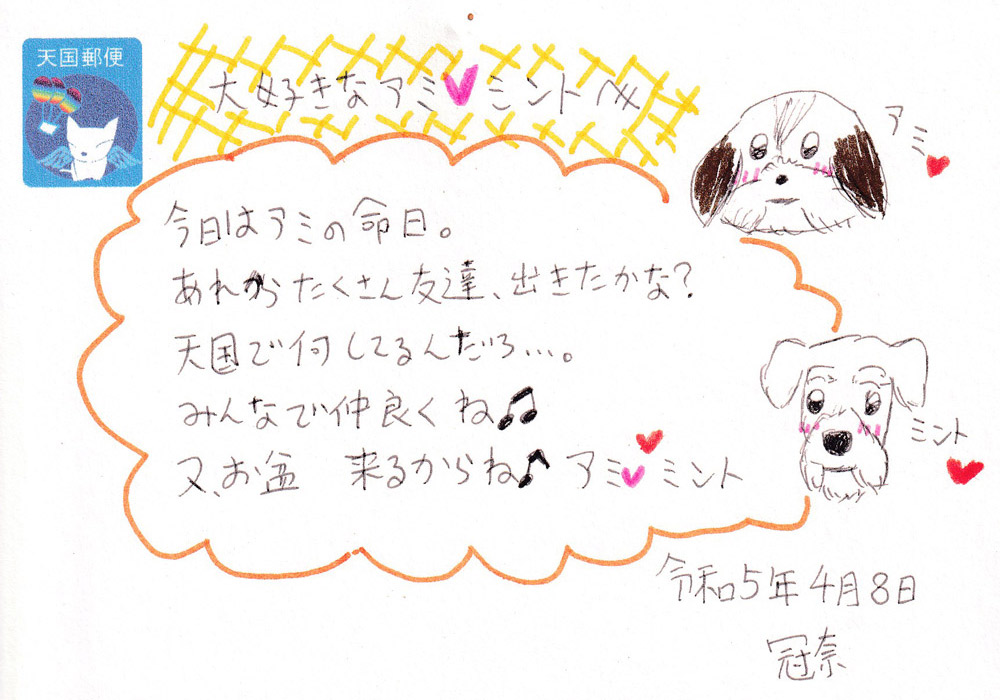 天国郵便
大好きなアミ♥ミントへ
アミ♥
今日はアミの命日。
あれからたくさん友達、出きたかな?
天国で何してるんだろ…。
みんなで仲良くね♫
又、お盆 来るからね♪ アミ♥ミント♥
ミント♥
令和5年4月8日
冠奈